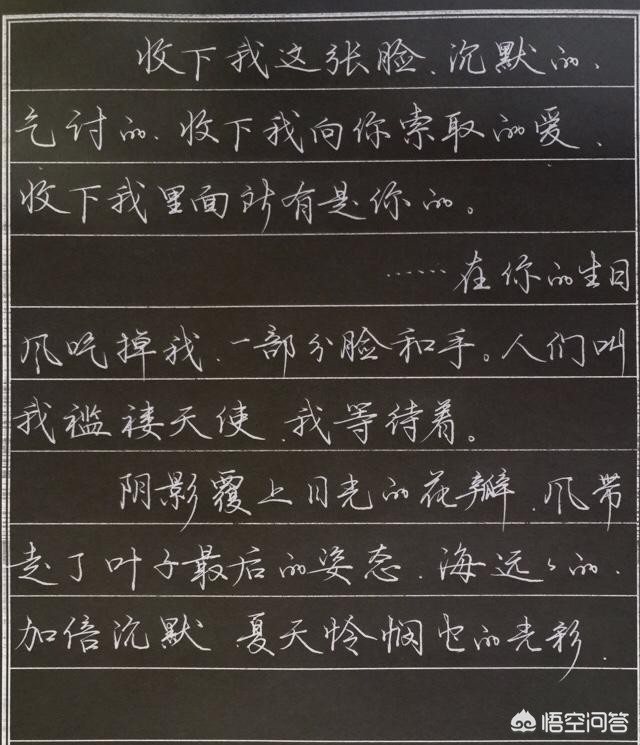 收下我这张脸、沉默的、
乞讨的、收下我向你索取的爱、
收下我里面所有是你的。
……在你的生日
风吃掉我、一部分脸和手。人们叫
我褴褛天使、我等待着。
阴影覆上月光的花瓣、风带
走了叶子最后的姿态、海远々的、
加倍沉默 夏天怜悯它的光彩.
悟空问答